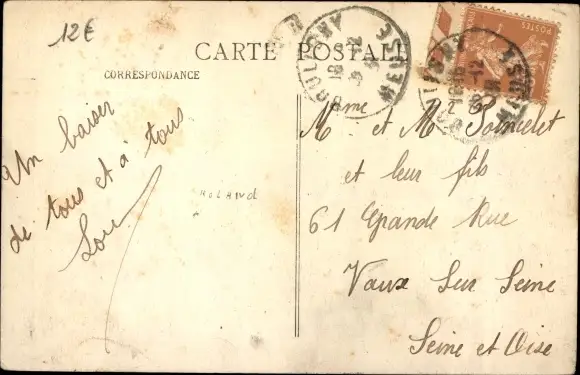 12€
CARTE POSTALE
CORRESPONDANCE
Un baiser
de tous et à tous
Lou
ROLAND
Mme et Mr Poincelet
et leur fils
61 Grande Rue
Vaux Sur Seine
Seine et Oise
POSTES
MEUSE